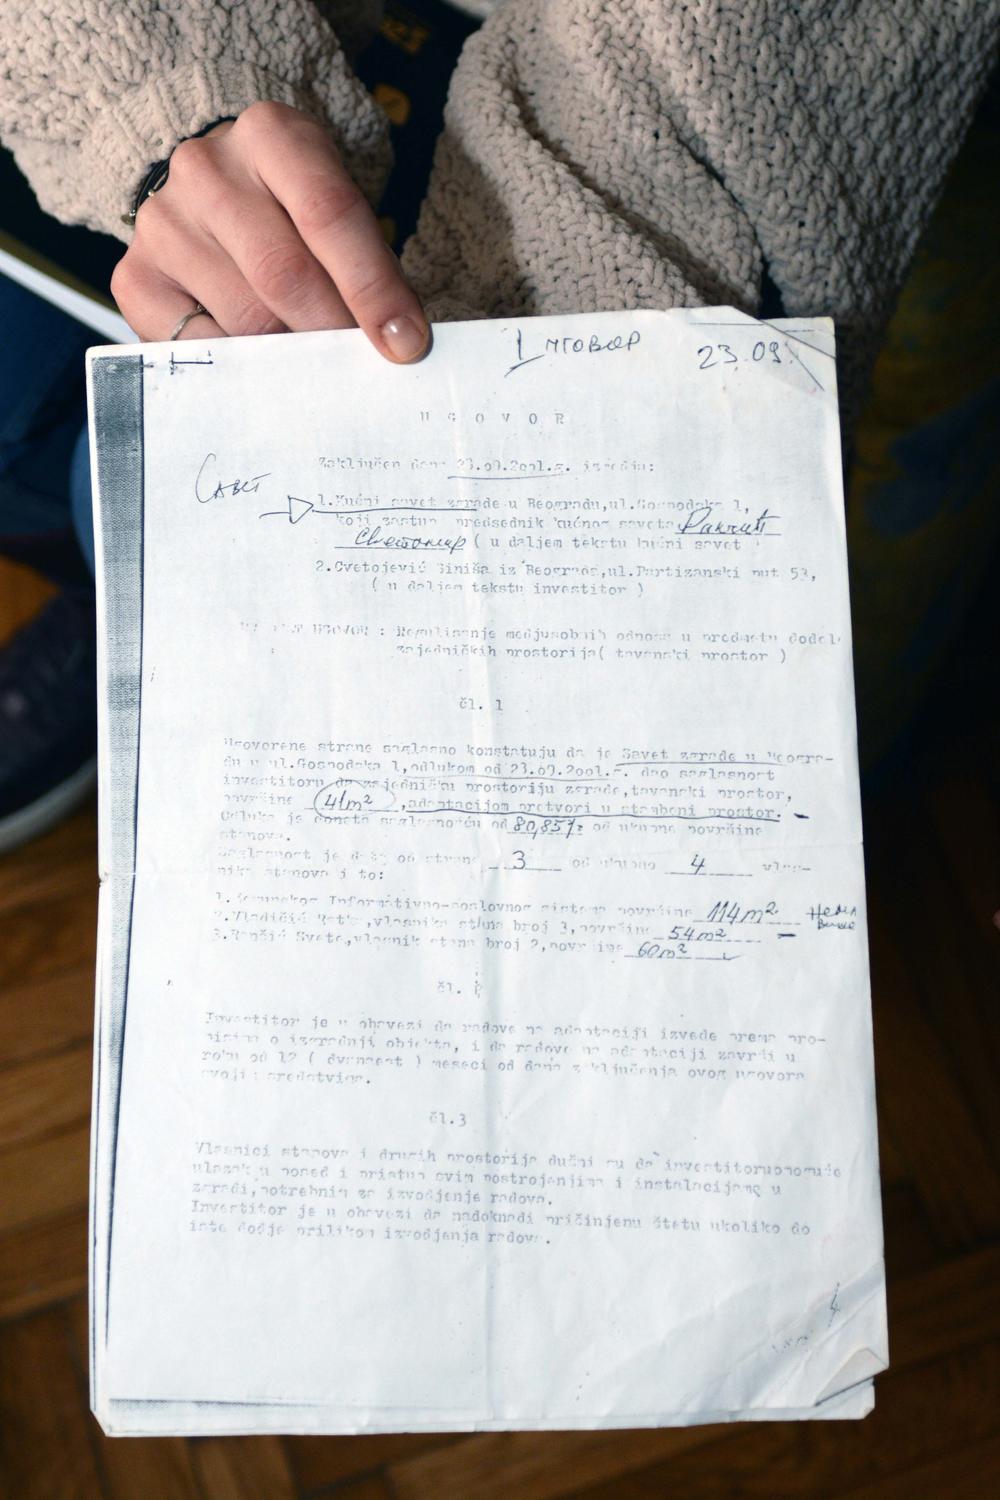 I УГОВОР 23.09.
U G O V O R
Zaključen dana 23.09.2001.g. izmedju:
САВЕТ
1.Kućni savet zgrade u Beogradu,ul.Gospodska 1,
koji zastupa predsednik kućnog saveta
( u daljem tekstu kućni savet )
2.Cvetojević Siniša iz Beograda,ul.Partizanski put 53,
( u daljem tekstu investitor )
UGOVOR : Regulisanje medjusobnih odnosa u predmetu dodele
zajedničkih prostorija( tavanski prostor )
čl. 1
Ugovorene strane saglasno konstatuju da je Savet zgrade u Beogra-
du u ul.Gospodska 1,odlukom od 23.09.2001.g. dao saglasnost
investitoru da zajedničku prostoriju zgrade,tavanski prostor,
površine 41m² ,adaptacijom pretvori u stambeni prostor. -
Odluka je doneta saglasnošću od 80,85% od ukupne površine
stanova.
Saglasnost je data od strane 3 od ukupno 4 vlas-
nika stanova i to:
1. Informativno-poslovnog sistema površine 114m²
2.Vladičić ,vlasnika stana broj 3,površine 54m² -
3.Rančić Sveta,vlasnik stana broj 2,površine 60m²
čl.
Investitor je u obavezi da radove na adaptaciji izvede prema pro-
pisima o izgradnji objekta, i da radove na adaptaciji završi u
roku od 12 ( dvanaest ) meseci od dana zaključenja ovog ugovora
svojim sredstvima.
čl.3
Vlasnici stanova i drugih prostorija dužni su da investitoru
ulazak u posed i pristup svim postrojenjima i instalacijama u
zgradi,potrebnim za izvodjenje radova.
Investitor je u obavezi da nadoknadi pričinjenu štetu ukoliko do
iste dodje prilikom izvodjenja radova.